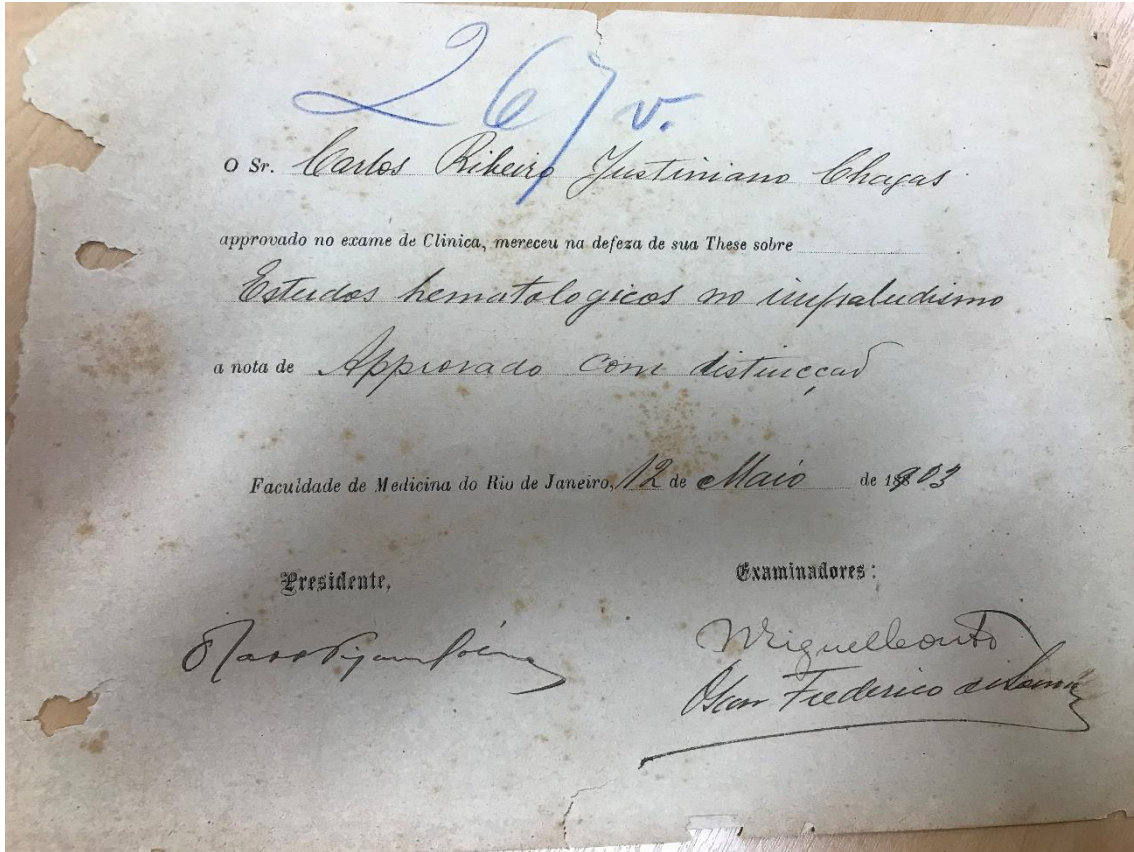 267 v.
O Sr. Carlos Ribeiro Justiniano Chagas
approvado no exame de Clinica, mereceu na defeza de sua These sobre
Estudos hematologicos no impaludismo
a nota de Approvado com distincção
Faculdade de Medicina do Rio de Janeiro, 12 de Maio de 1903
Presidente,
Examinadores:
Miguel Couto
Oscar Frederico de Souza